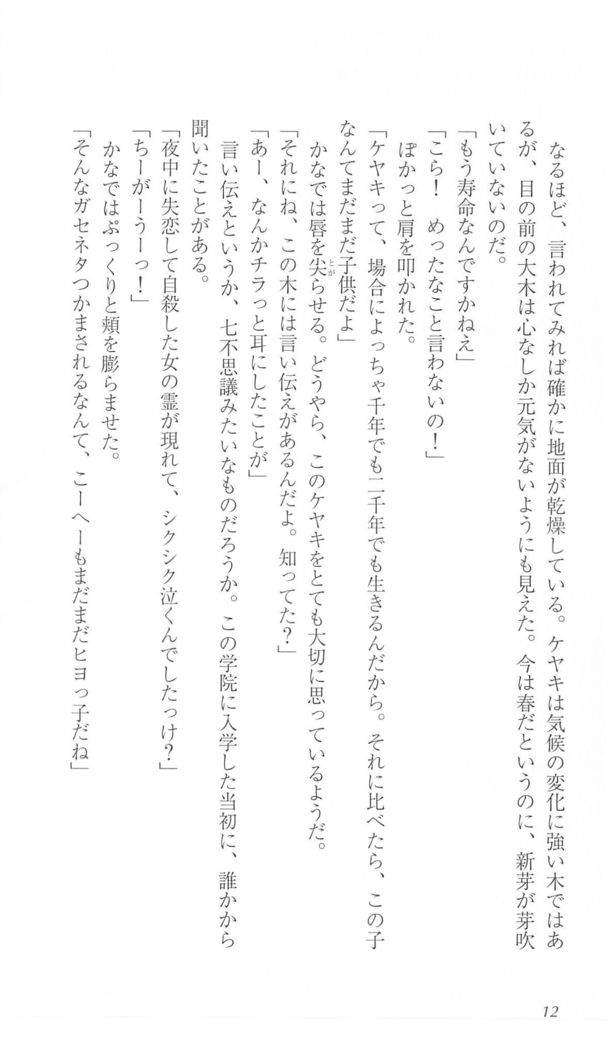 なるほど、言われてみれば確かに地面が乾燥している。ケヤキは気候の変化に強い木ではあ
るが、目の前の大木は心なしか元気がないようにも見えた。今は春だというのに、新芽が芽吹
いていないのだ。
「もう寿命なんですかねえ」
「こら！　めったなこと言わないの！」
ぽかっと肩を叩かれた。
「ケヤキって、場合によっちゃ千年でも二千年でも生きるんだから。それに比べたら、この子
なんてまだまだ子供だよ」
かなでは唇を尖らせる。どうやら、このケヤキをとても大切に思っているようだ。
とが
「それにね、この木には言い伝えがあるんだよ。知ってた？」
「あー、なんかチラっと耳にしたことが」
言い伝えというか、七不思議みたいなものだろうか。この学院に入学した当初に、誰かから
聞いたことがある。
「夜中に失恋して自殺した女の霊が現れて、シクシク泣くんでしたっけ？」
「ちーがーうーっ！」
かなではぷっくりと頬を膨らませた。
「そんなガセネタつかまされるなんて、こーへーもまだまだヒヨっ子だね」
12